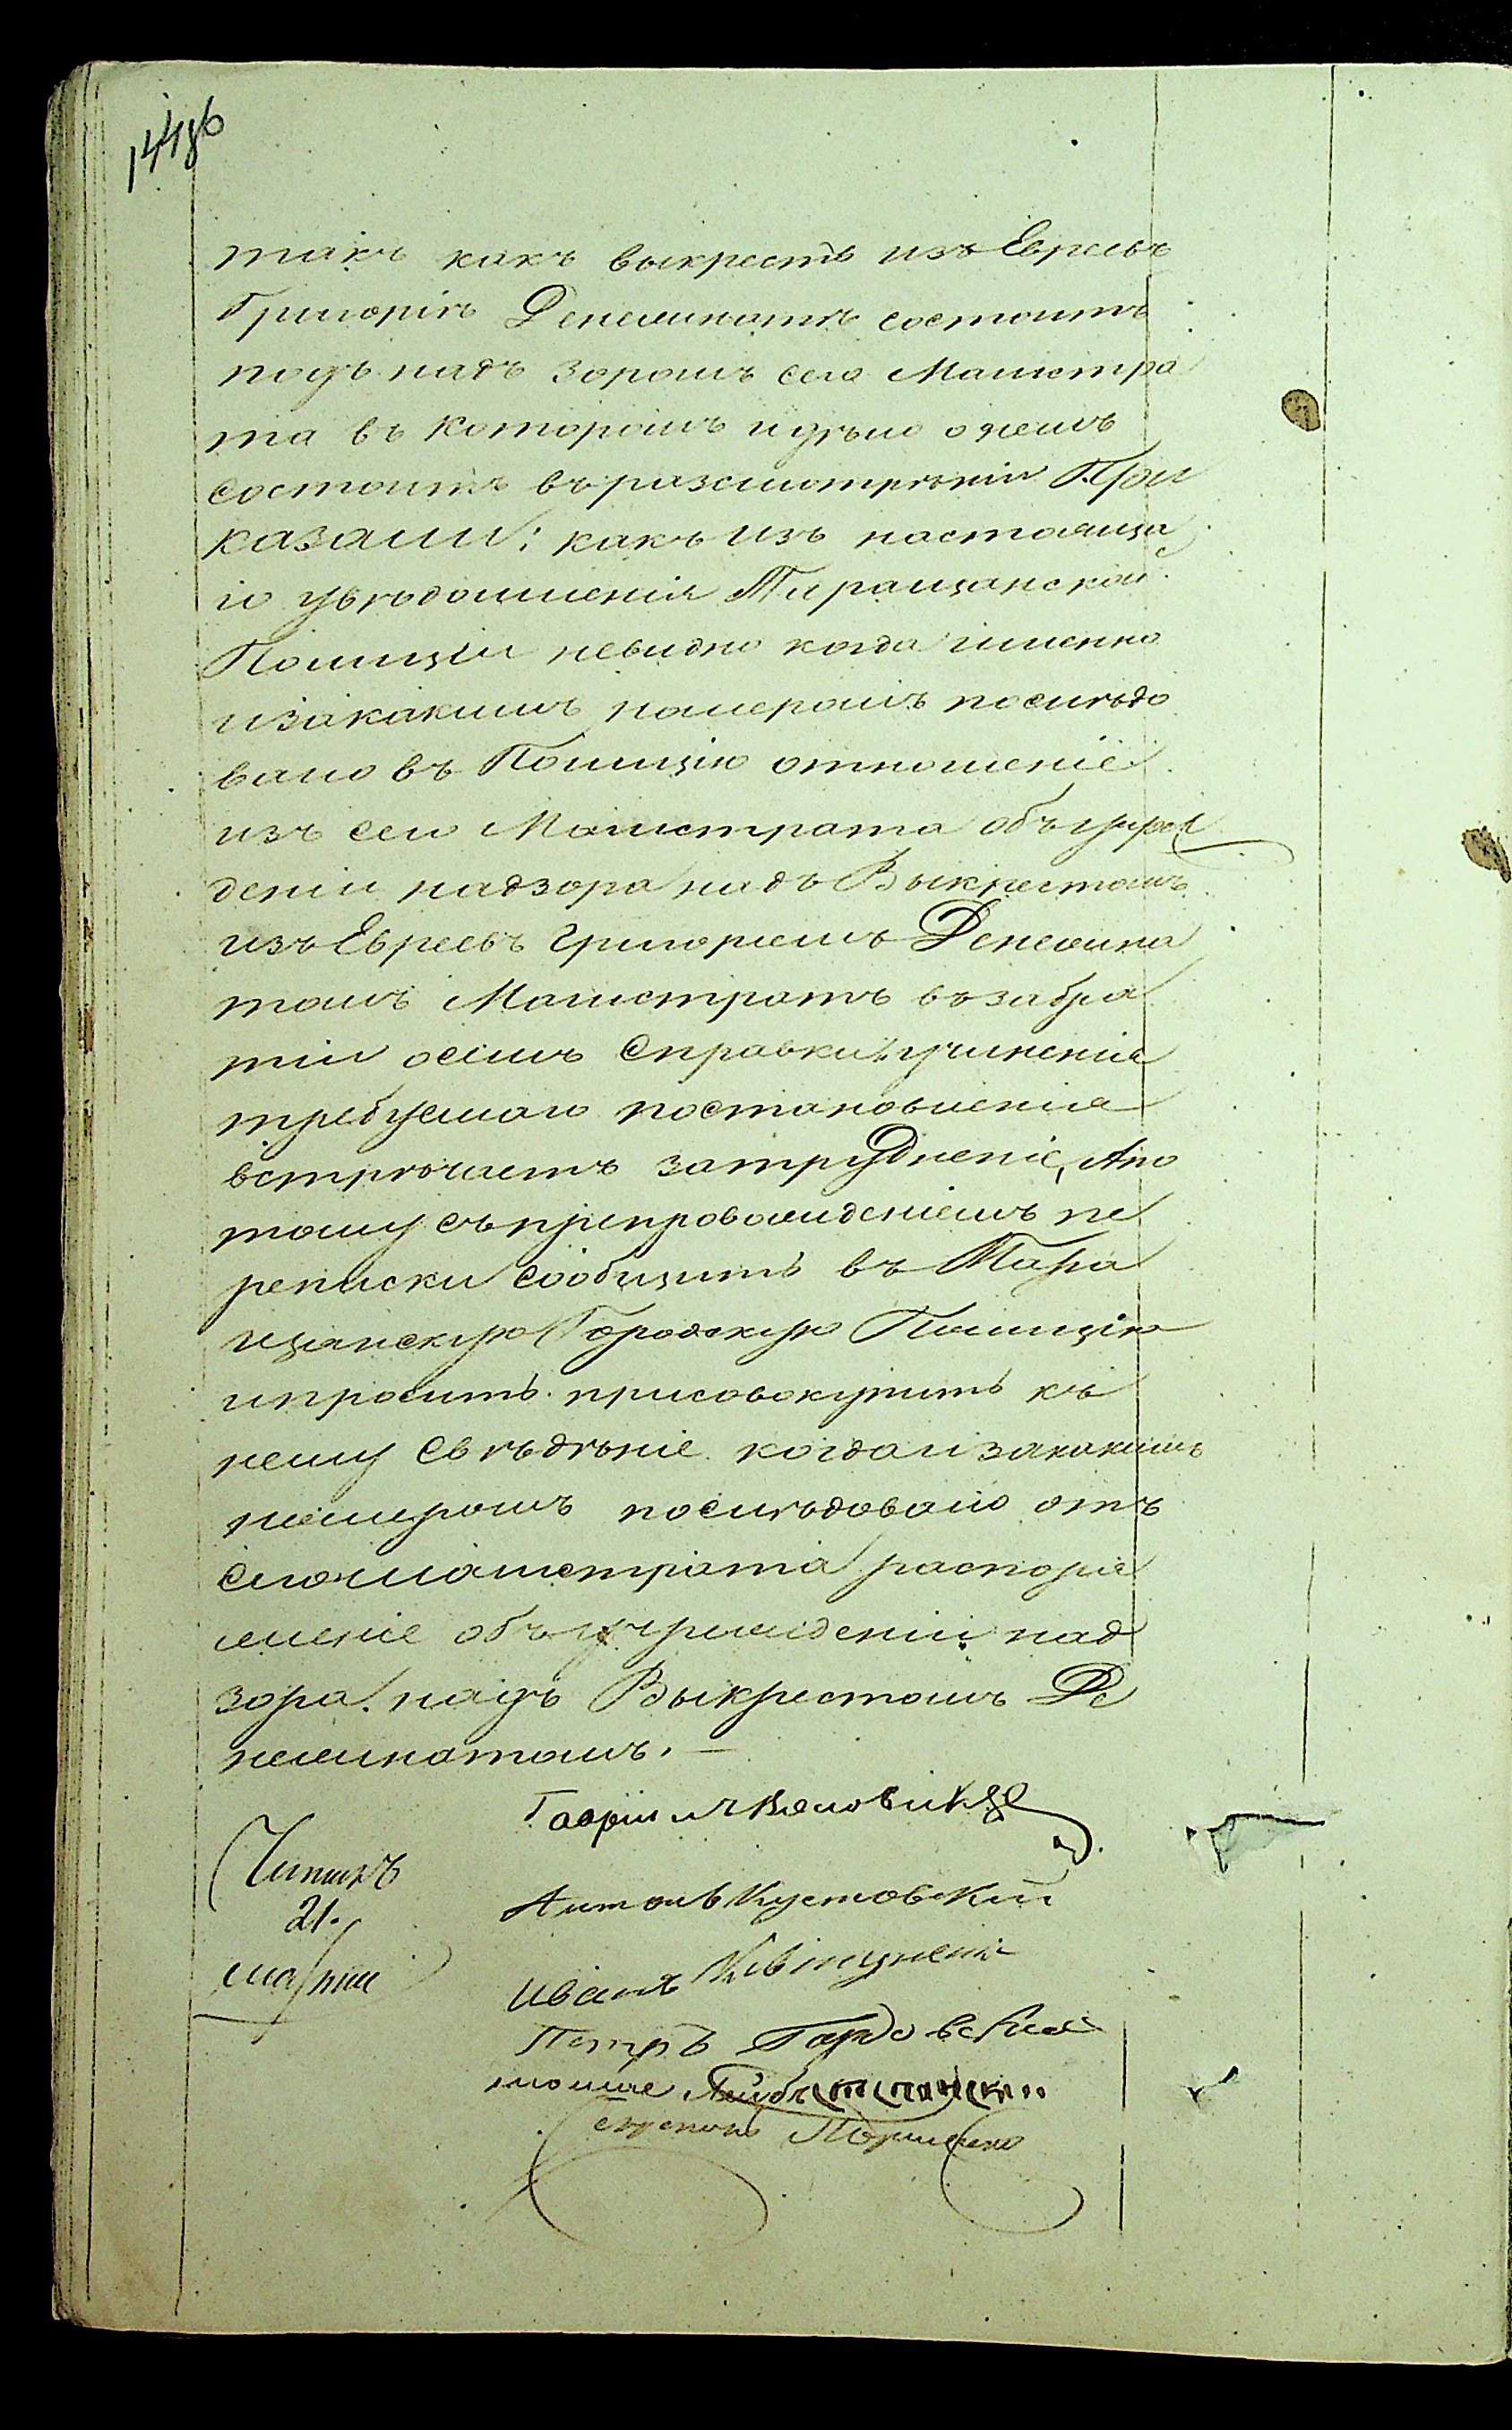 такъ какъ выкрестъ изъ Евреевъ
Григорій Денежнатъ состоитъ
подъ надъ зоромъ сего Магистра
та въ которомъ и дѣло о немъ
состоитъ въ разсмотрѣніи При
казали: какъ изъ настояща
го увѣдомленія Таращанской
Полиціи невидно когда именно
изакакимъ номеромъ послѣдо
вало въ Полицію отношеніе
изъ сего Магистрата объ учреж
деніи надзора надъ Выкрестомъ
изъ Евреевъ Григориемъ Денежна
томъ Магистратъ въ забра
тіи осемъ справки и учиненія
требуемаго постановленія
встрѣчаетъ затрудненіе, Апо
тому съ препровожденіемъ пе
реписки сообщить въ Тара
щанскую Городскую Полицію
ипросить присовокупить къ
нему свѣдѣніе когда и закакимъ
номеромъ послѣдовало отъ
сего магистрата распоря
женіе объ учрежденіи над
зора надъ Выкрестомъ Де
нежнатомъ.
Читалъ
21.
Антонъ Кустовскій
Иванъ
Петръ